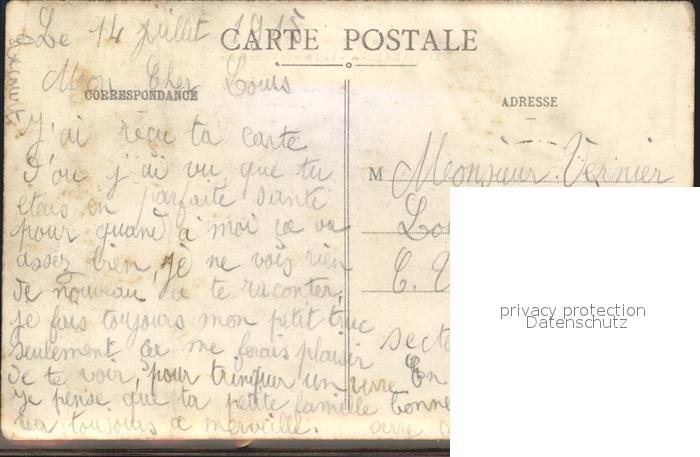 Le 14 juillet 1915
CARTE POSTALE
Mon Cher Louis
CORRESPONDANCE
ADRESSE
J'ai reçu ta carte
d'ou j'ai vu que tu
étais en parfaite santé
pour quand à moi ça va
assez bien, je ne vois rien
de nouveau a te raconter,
je fais toujours mon petit truc
seulement ça me ferais plaisir
de te voir, pour trinquer un verre En
je pense que ta petite famille bonne
va toujours a merveille. serre
M Monsieur Vernier
secte
privacy protection
Datenschutz